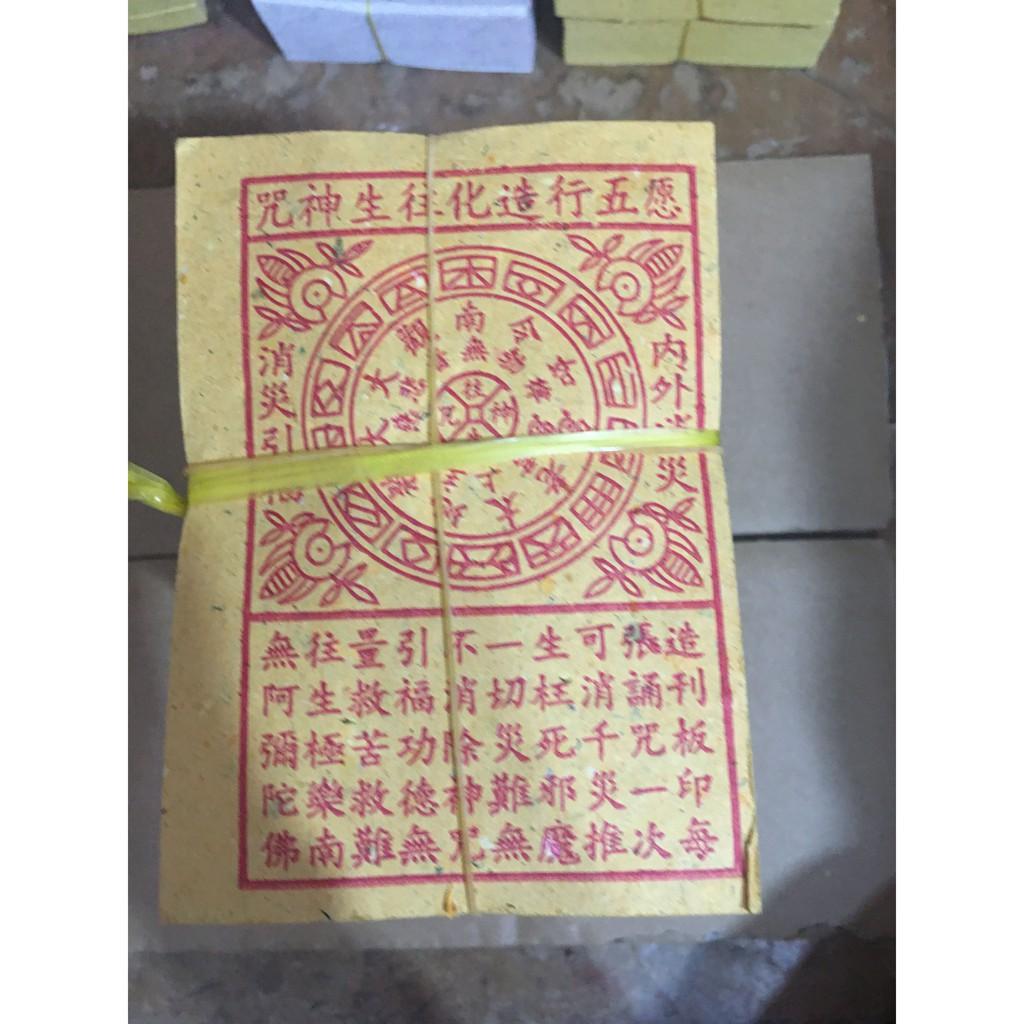 愿五行造化往生神咒
內外消災
消災引福
南無
往
神
咒
造刊板印每
張誦咒一次
可消千災推
生枉死邪魔
一切災難無
不消除神咒
引福功德無
量救苦救難
往生極樂南
無阿彌陀佛